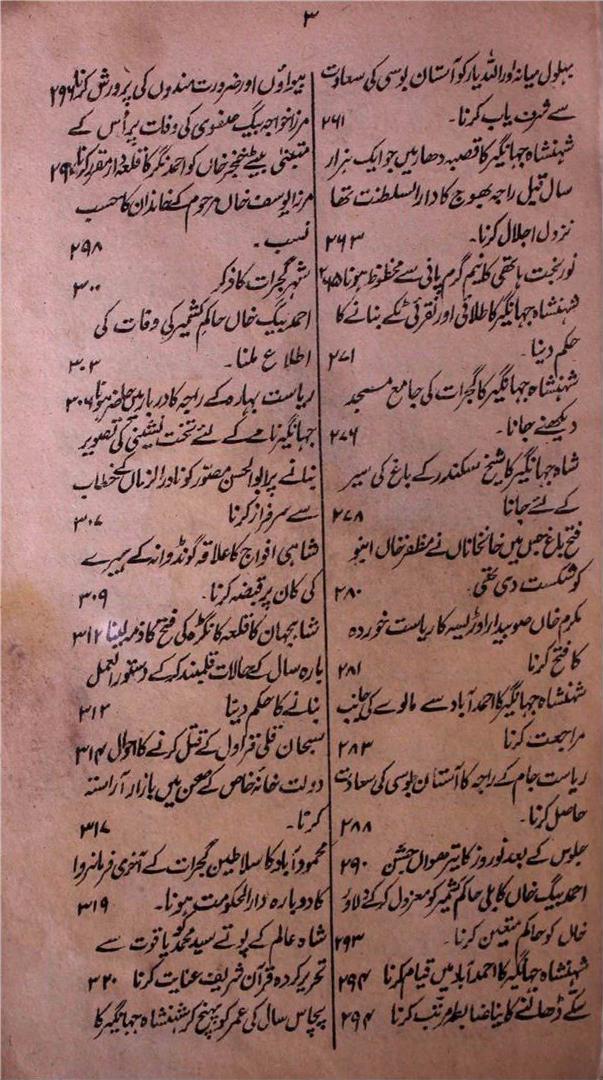 ۳
بہلول میانہ اور اللہ یار کو آستان بوسی کی سعادت
سے شرف یاب کرنا۔ ۲۶۱
شہنشاہ جہانگیر کا قصبہ دھار میں جو ایک ہزار
سال قبل راجہ بھوج کا دارالسلطنت تھا
نزول اجلال کرنا۔ ۲۶۳
نور بخت ہاتھی کا نیم گرم پانی سے محظوظ ہونا ۲۶۵
شہنشاہ جہانگیر کا طلائی اور نقرئی ٹکے بنانے کا
حکم دینا۔ ۲۷۱
شہنشاہ جہانگیر کا گجرات کی جامع مسجد
دیکھنے جانا۔ ۲۷۶
شاہ جہانگیر کا شیخ سکندر کے باغ کی سیر
کے لئے جانا ۲۷۸
فتح باغ جس میں خانخاناں نے مظفر خاں
کو شکست دی تھی ۲۸۰
مکرم خاں صوبیدار اوڑیسہ کا ریاست خوردہ
کا فتح کرنا ۲۸۱
شہنشاہ جہانگیر کا احمد آباد سے مالوے کی جانب
مراجعت کرنا ۲۸۳
ریاست جام کے راجہ کا آستان بوسی کی سعادت
حاصل کرنا۔ ۲۸۸
جلوس کے بعد نوروز کا تیرھواں جشن ۲۹۰
احمد بیگ خاں کابلی حاکم کشمیر کو معزول کرکے دلاور
خاں کو حاکم متعین کرنا۔ ۲۹۳
شہنشاہ جہانگیر کا احمد آباد میں قیام کرنا ۲۹۴
سکے ڈھالنے کا نیا ضابطہ مرتب کرنا ۲۹۴
بیواؤں اور ضرورت مندوں کی پرورش کرنا ۲۹۶
مرزا خواجہ بیگ صفوی کی وفات پر اُس کے
متبنیٰ بیٹے خنجر خاں کو احمد نگر کا قلعہ دار مقرر کرنا
مرزا یوسف خاں مرحوم کے خاندان کا حسب
نسب۔ ۲۹۸
شہر گجرات کا ذکر ۳۰۰
احمد بیگ خاں حاکم کشمیر کی وفات کی
اطلاع ملنا۔ ۳۰۳
ریاست بہارہ کے راجہ کا دربار میں حاضر ہونا ۳۰۶
جہانگیر نامے کے لئے تخت نشینی کی تصویر
بنانے پر ابوالحسن مصور کو نادر الزماں کے خطاب
سے سرفراز کرنا ۳۰۷
شاہی افواج کا علاقہ گونڈوانہ کے ہیرے
کی کان پر قبضہ کرنا۔ ۳۰۹
شاہجہان کا قلعہ کانگڑہ کی فتح کا ذمہ لینا ۳۱۲
بارہ سال کے حالات قلمبند کرکے دستور العمل
بنانے کا حکم دینا ۳۱۳
سبحان قلی قراول کے قتل کرنے کا احوال ۳۱۴
دولت خانہ خاص کے صحن میں بازار آراستہ
کرنا۔ ۳۱۷
محمود آباد کا سلاطین گجرات کے آخری فرمانروا
کا دوبارہ دارالحکومت ہونا۔ ۳۱۹
شاہ عالم کے پوتے سید محمد کو یاقوت سے
تحریر کردہ قرآن شریف عنایت کرنا ۳۲۰
پچاس سال کی عمر کو پہنچ کر شہنشاہ جہانگیر کا